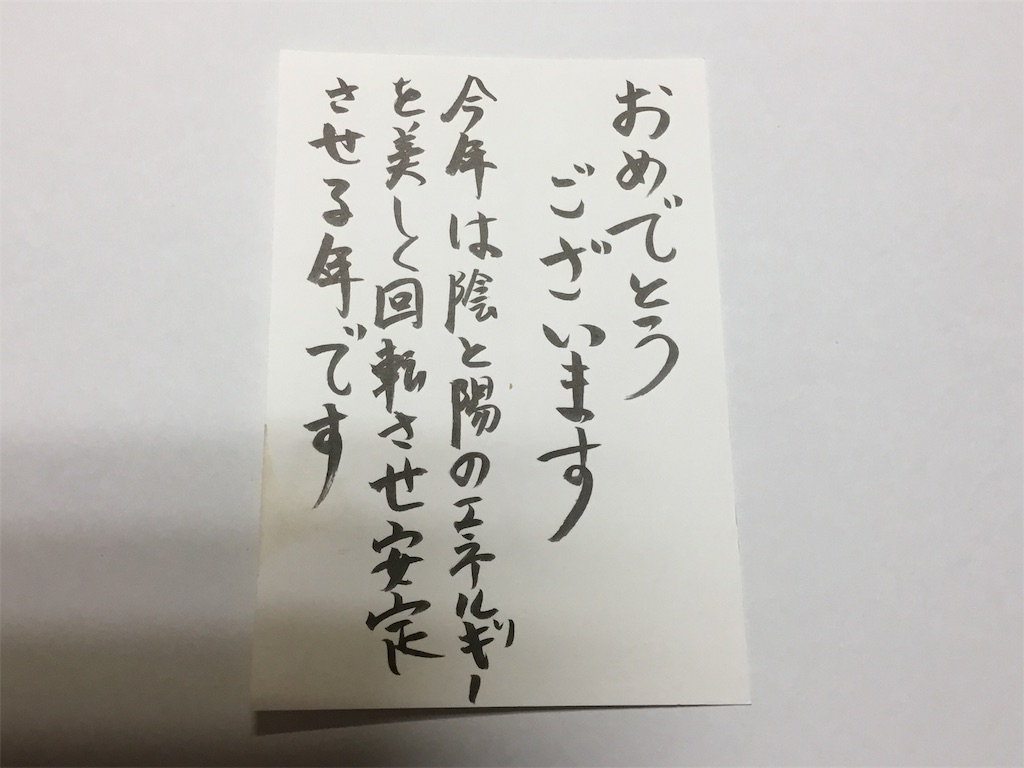 おめでとう
ございます
今年は陰と陽のエネルギー
を美しく回転させ安定
させる年です